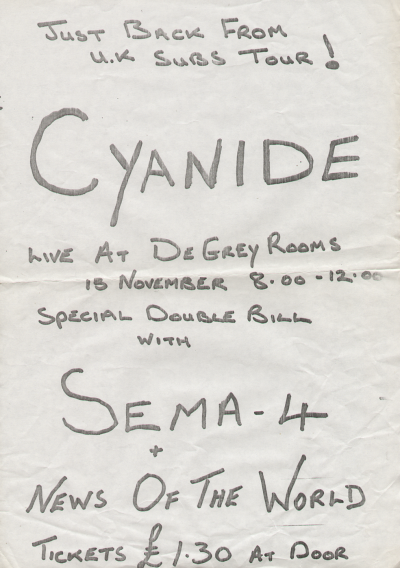 JUST BACK FROM
U.K SUBS TOUR!
CYANIDE
LIVE AT DE GREY ROOMS
15 NOVEMBER 8.00-12.00
SPECIAL DOUBLE BILL
WITH
SEMA-4
+
NEWS OF THE WORLD
TICKETS £1.30 AT DOOR